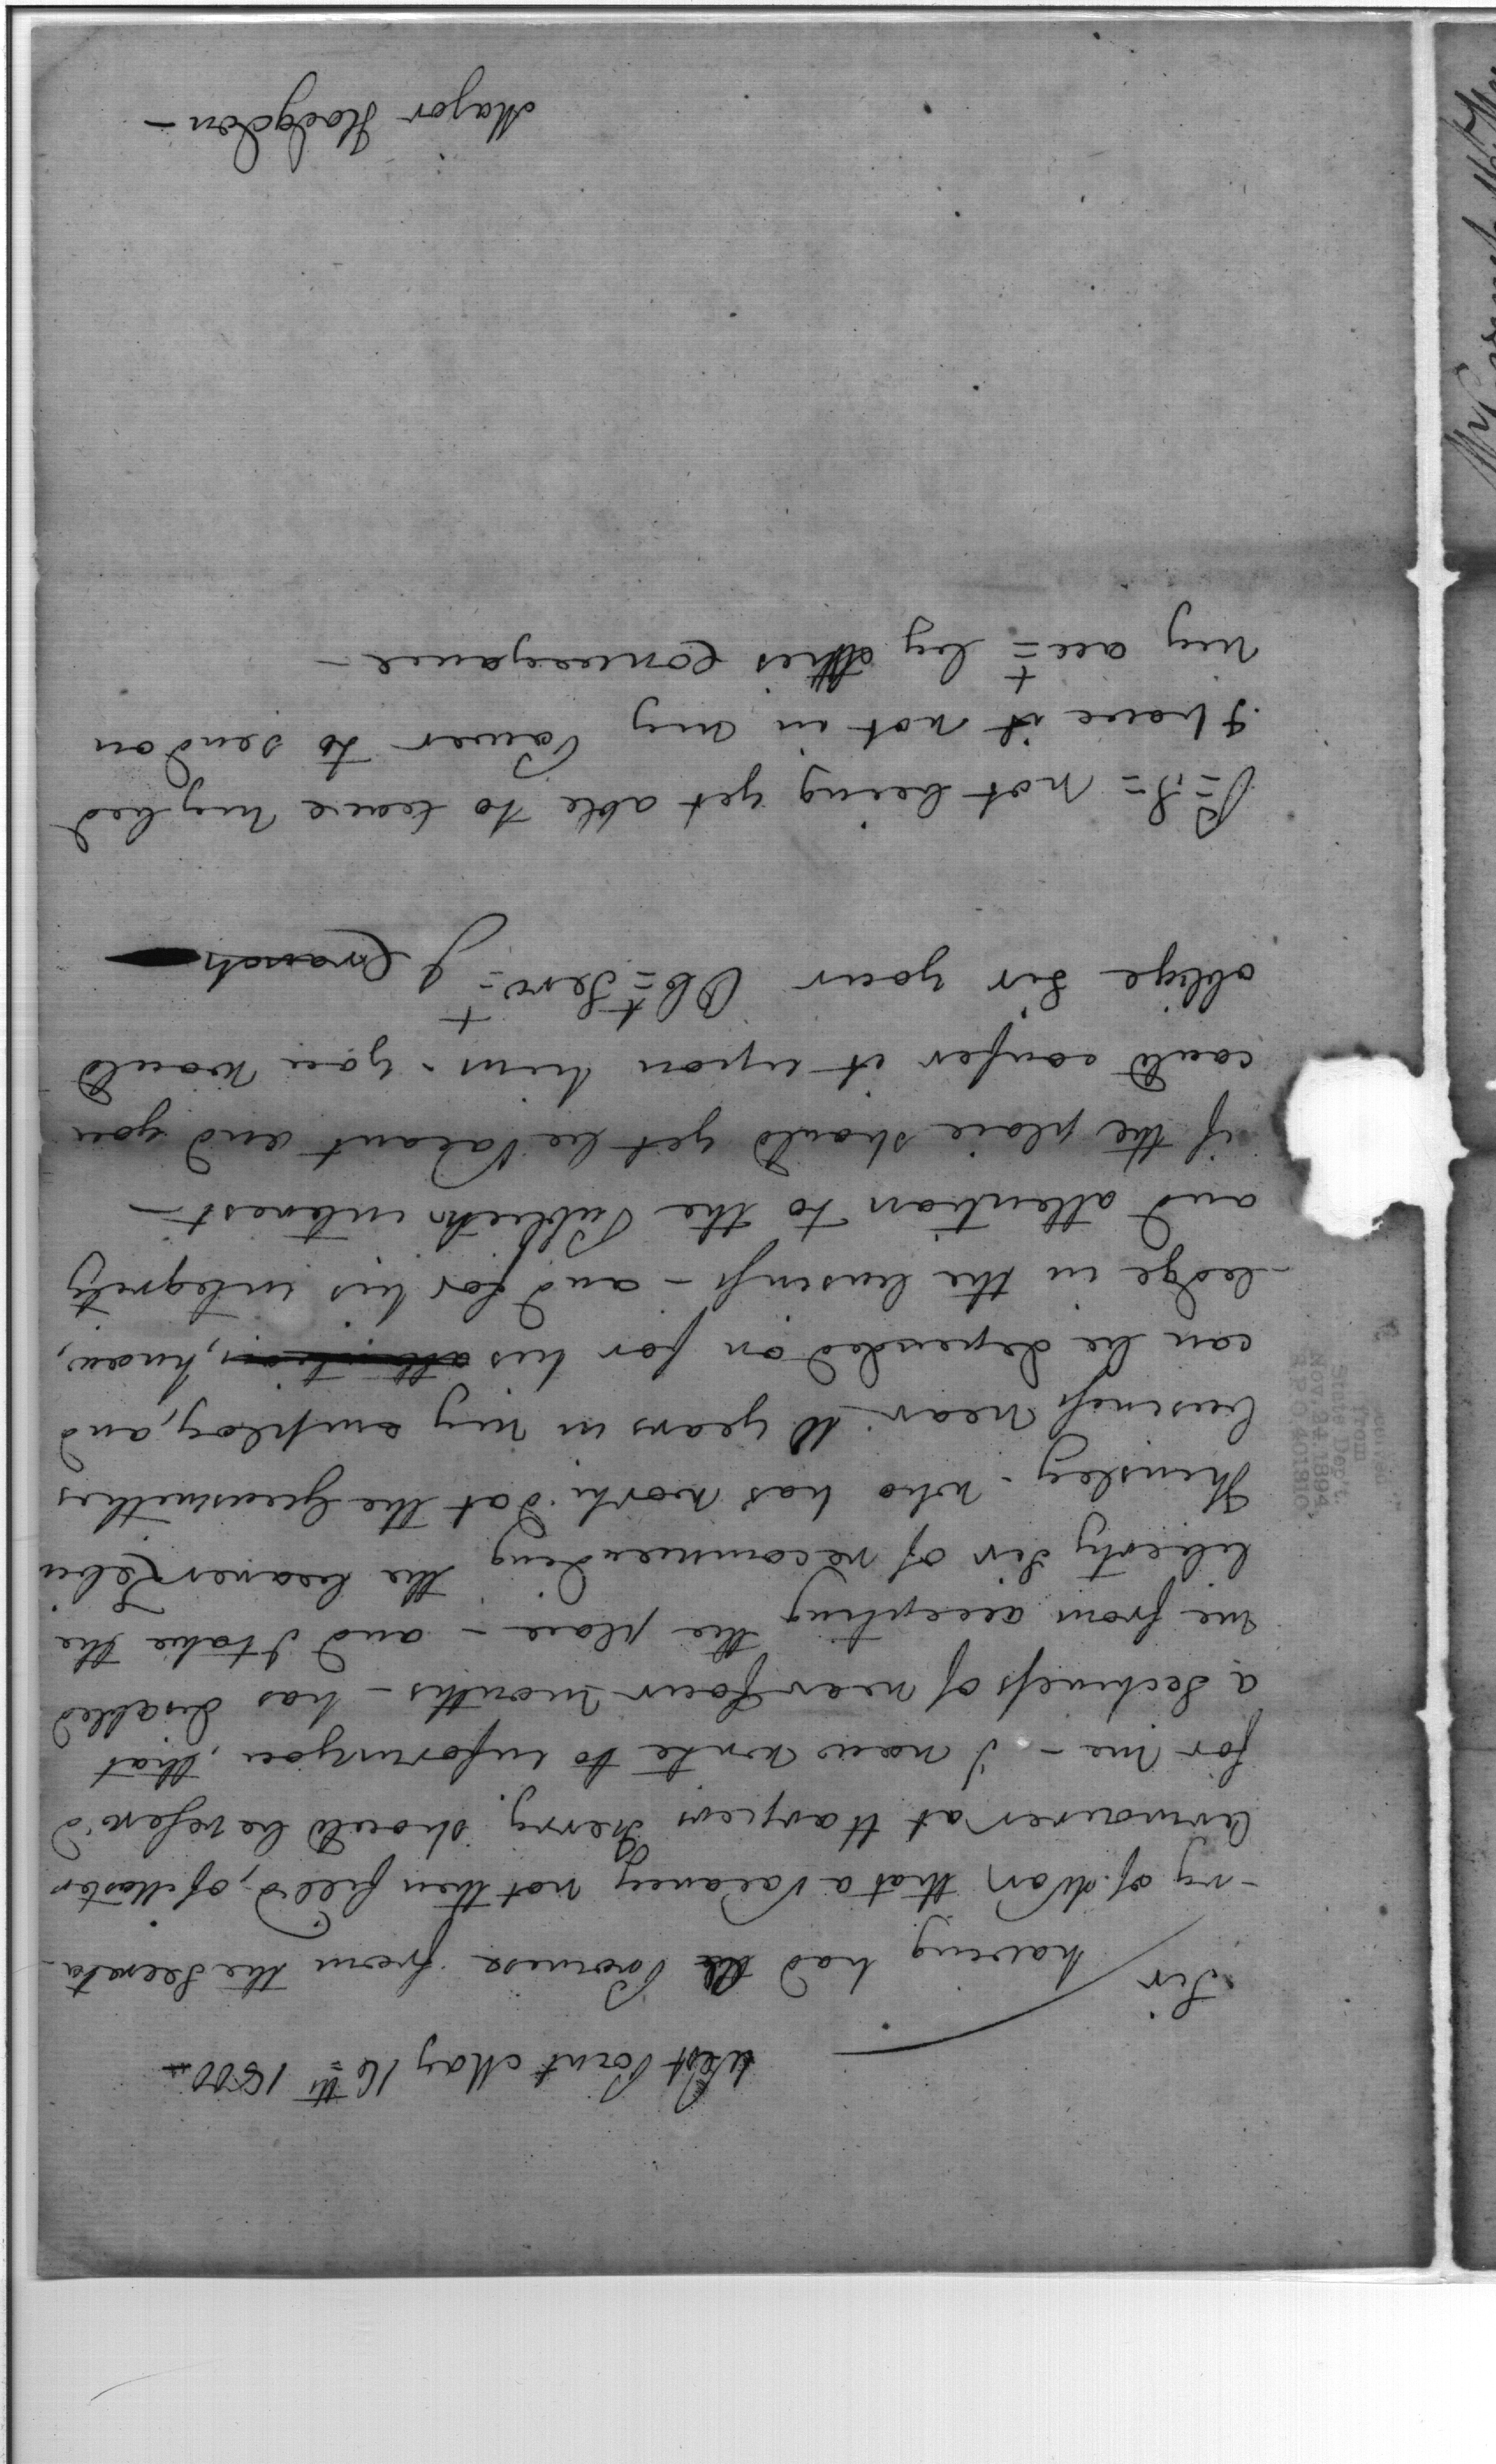 West Point May 16th 1800
Sir
having had a Promise from the Secreta-
-ry of War that a Vacancy not then fill'd, of Master
Armourer at Harpers Ferry, should be reserv'd
for me - I now write to inform you, that
a Sickness of near four months - has disabled
me from accepting the place - and I take the
liberty Sir of recommending the bearer
Hinsley - who has work'd at the Gunsmiths
business near 10 years in my employ, and
can be depended on for his know,
-ledge in the business - and for his integrity
and attention to the Publick interest -
if the place should yet be Vacant and you
could confer it upon him - you would
oblige Sir your Obt Servt
J Cranch
P=S= Not being yet able to leave my bed
I have it not in my Power to send on
my acct by this Conveeyance -
Major Hodgdon -
from
State Dep't.
Nov. 24. 1894
R.P.O 401810